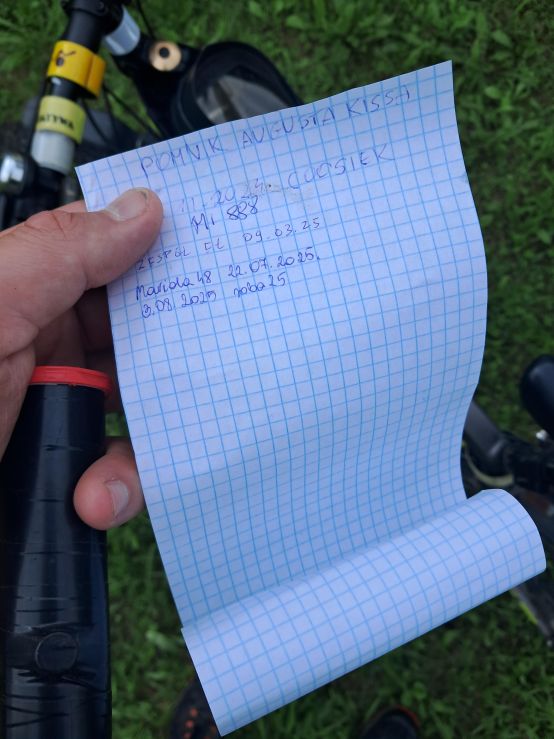 POMNIK AUGUSTA KISSA
11.2024. COOSIEK
Mi 888
ZESPÓŁ EŁ 09.03.25
Mariola48 22.07.2025.
3.08 2025 roba25